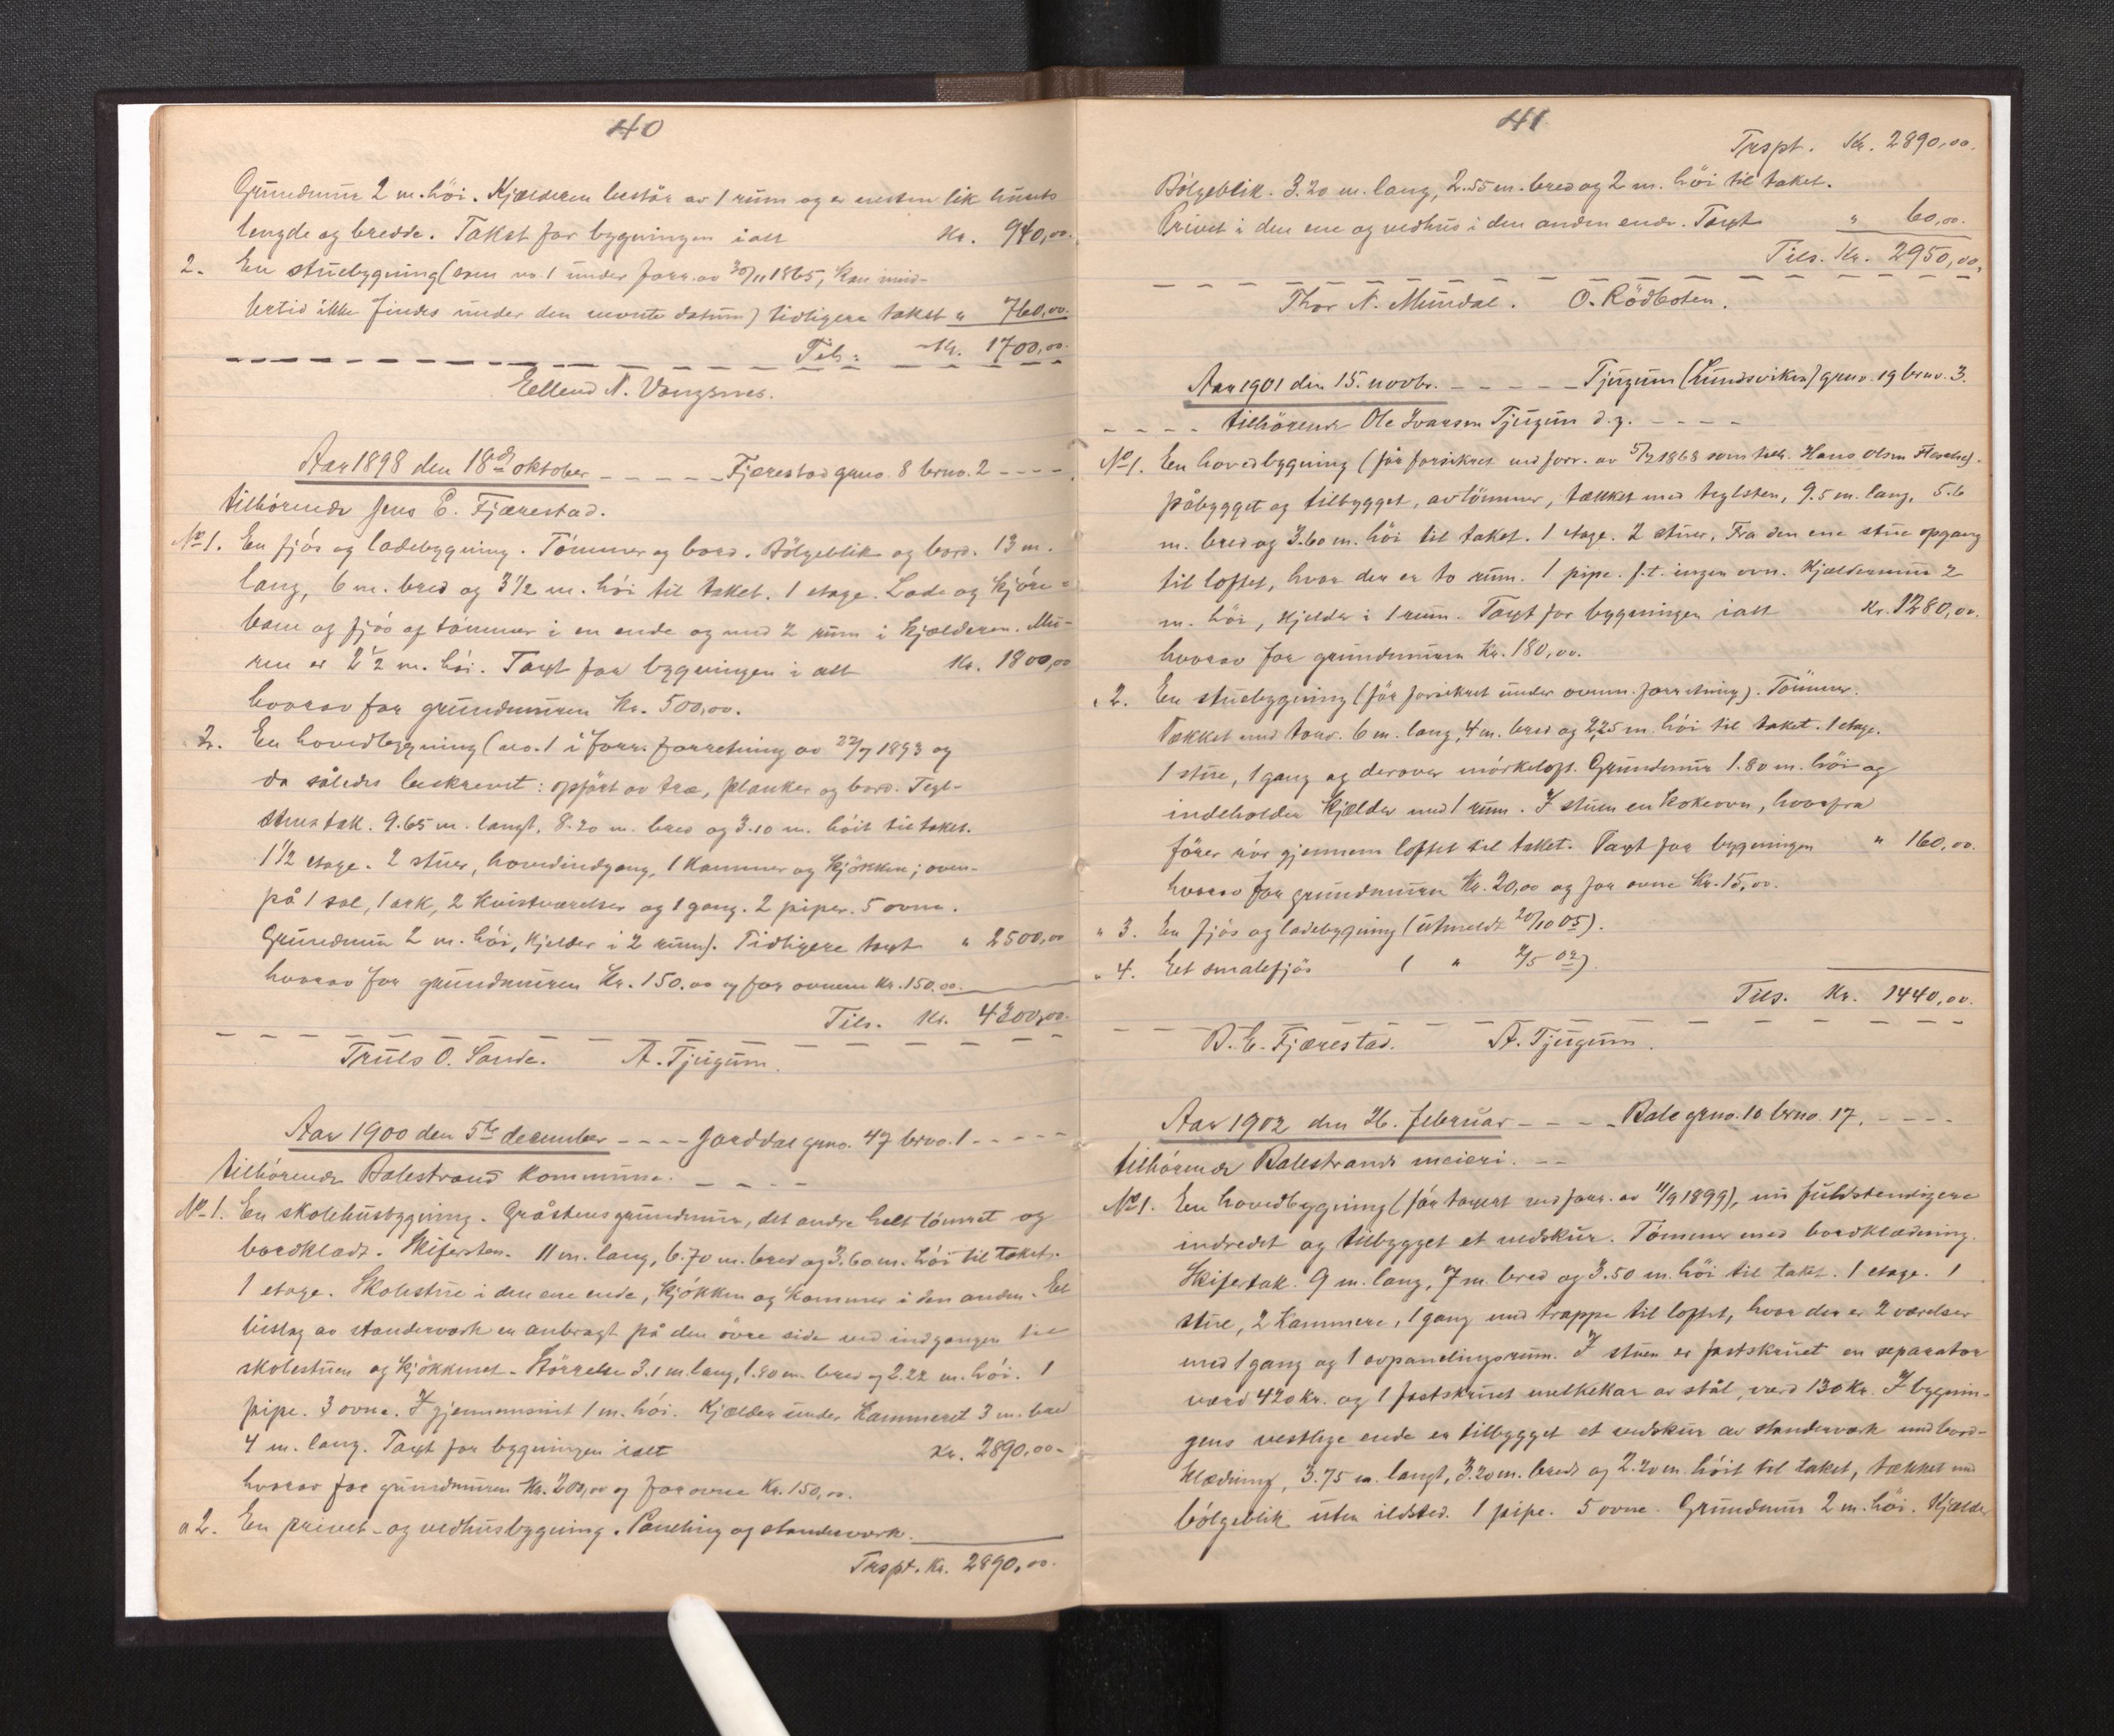 40
Grundmur 2 m. höi. Kjælderen består av 1 rum og er nesten lik husets
lengde og bredde. Takst for bygningen ialt Kr. 940,00.
2. En stuebygning (som no. 1 under forr. av 30/11 1865, kan imid-
lertid ikke findes under den nevnte datum) tidligere takst " 760,00.
Tils. Kr. 1700,00.
Ellend N. Vangsnes.
Aar 1898 den 18de oktober - - - - - Fjærestad grno 8 brno. 2 - - - -
tilhörende Jens E. Fjærestad.
No 1. En fjös og ladebygning. Tömmer og bord. Bölgeblik og bord. 13 m.
lang, 6 m. bred og 3 1/2 m. höi til taket. 1 etage. Lade og kjöre-
bane og fjös af tömmer i en ende og med 2 rum i kjælderen. Mu-
ren er 2 1/2 m. höi. Taxt for bygningen i alt Kr. 1800,00
hvorav for grundmuren Kr. 500,00.
" 2. En hovedbygning (no. 1 i forr. forretning av 22/7 1893 og
da således beskrevet: opfört av træ, planker og bord. Tegl-
stenstak. 9.65 m. langt, 8.20 m. bred og 3.10 m. höit til taket.
1 1/2 etage. 2 stuer, hovedindgang, 1 kammer og kjökken; oven-
på 1 sal, 1 ark, 2 kvistværelser og 1 gang. 2 piper. 5 ovne.
Grundmur 2 m. höi, kjelder i 2 rum). Tidligere taxt " 2500,00
hvorav for grundmuren Kr. 150.00 og for ovnene Kr. 150.00.
Tils. Kr. 4300,00.
Truls O. Sande. A. Tjugum.
Aar 1900 den 5te december - - - - Jorddal grno. 47 brno. 1 - - - - -
tilhörende Balestrand kommune. - - - -
No 1. En skolehusbygning. Gråstensgrundmur, det andre helt tömret og
bordklædt. Skifersten. 11 m. lang, 6.70 m. bred og 3.60 m. höi til taket.
1 etage. Skolestue i den ene ende, kjökken og kammer i den anden. Et
bislag av standerverk er anbragt på den övre side ved indgangen til
skolestuen og kjökkenet. Störrelse 3.1 m. lang, 1.80 m. bred og 2.22 m. höi. 1
pipe. 3 ovne. I gjennemsnit 1 m. höi. Kjælder under kammeret 3 m. bred
4 m. lang. Taxt for bygningen ialt Kr. 2890,00.
hvorav for grundmuren Kr. 200,00 og for ovne Kr. 150,00.
" 2. En privet- og vedhusbygning. Paneling og standerverk.
Trspt. Kr. 2890,00.
41
Trspt. Kr. 2890,00.
Bölgeblik. 3.20 m. lang, 2.55 m. bred og 2 m. höi til taket.
Privet i den ene og vedhus i den anden ende. Taxt " 60,00.
Tils. Kr. 2950,00.
Thor N. Mundal. O. Rödboten.
Aar 1901 den 15. novbr. - - - - - Tjugum (Lundsviken) grno. 19 brno. 3.
- - - - tilhörende Ole Ivarson Tjugum d.y. - - - -
No 1. En hovedbygning (för forsikret ved forr. av 5/7 1868 som tilh. Hans Olsen).
påbygget og tilbygget, av tömmer, tækket med teglsten, 9.5 m. lang, 5.6
m. bred og 3.60 m. höi til taket. 1 etage. 2 stuer. Fra den ene stue opgang
til loftet, hvor der er to rum. 1 pipe. f.t. ingen ovn. Kjældermur 2
m. höi, kjelder i 1 rum. Taxt for bygningen ialt Kr. 1280,00.
hvorav for grundmuren Kr. 180,00.
" 2. En stuebygning (för forsikret under ovenn. forretning). Tömmer.
Tækket med torv. 6 m. lang, 4 m. bred og 2,25 m. höi til taket. 1 etage.
1 stue, 1 gang og derover mörkeloft. Grundmur 1.80 m. höi og
indeholder kjælder med 1 rum. I stuen en kokeovn, hvorfra
förer rör gjennem loftet til taket. Taxt for bygningen " 160,00.
hvorav for grundmuren Kr. 20,00 og for ovne Kr. 15,00.
" 3. En fjös og ladebygning (utmeldt 20/10 05).
" 4. Et smalefjös ( " 2/5 02)
Tils. Kr. 1440,00.
B. E. Fjærestad. A. Tjugum.
Aar 1902 den 26. februar - - - - Bale grno. 10 brno. 17. - - - -
tilhörende Balestrands meieri. - -
No 1. En hovedbygning (för taxert ved forr. av 11/9 1899), nu fuldstendigere
indredet og tilbygget et vedskur. Tömmer med bordklædning.
Skifertak. 9 m. lang, 7 m. bred og 3.50 m. höi til taket. 1 etage. 1
stue, 2 kammere, 1 gang med trappe til loftet, hvor der er 2 værelser
med 1 gang og 1 avpanelingsrum. I stuen er fastskruet en separator
værd 420 kr. og 1 fastskruet melkekar av stål, værd 130 kr. I bygnin-
gens vestlige ende er tilbygget et vedskur av standerverk med bord-
klædning, 3.75 m. langt, 3.20 m. bredt og 2.20 m. höit til taket, tækket med
bölgeblik uten ildsted. 1 pipe. 5 ovne. Grundmur 2 m. höi. Kjælder